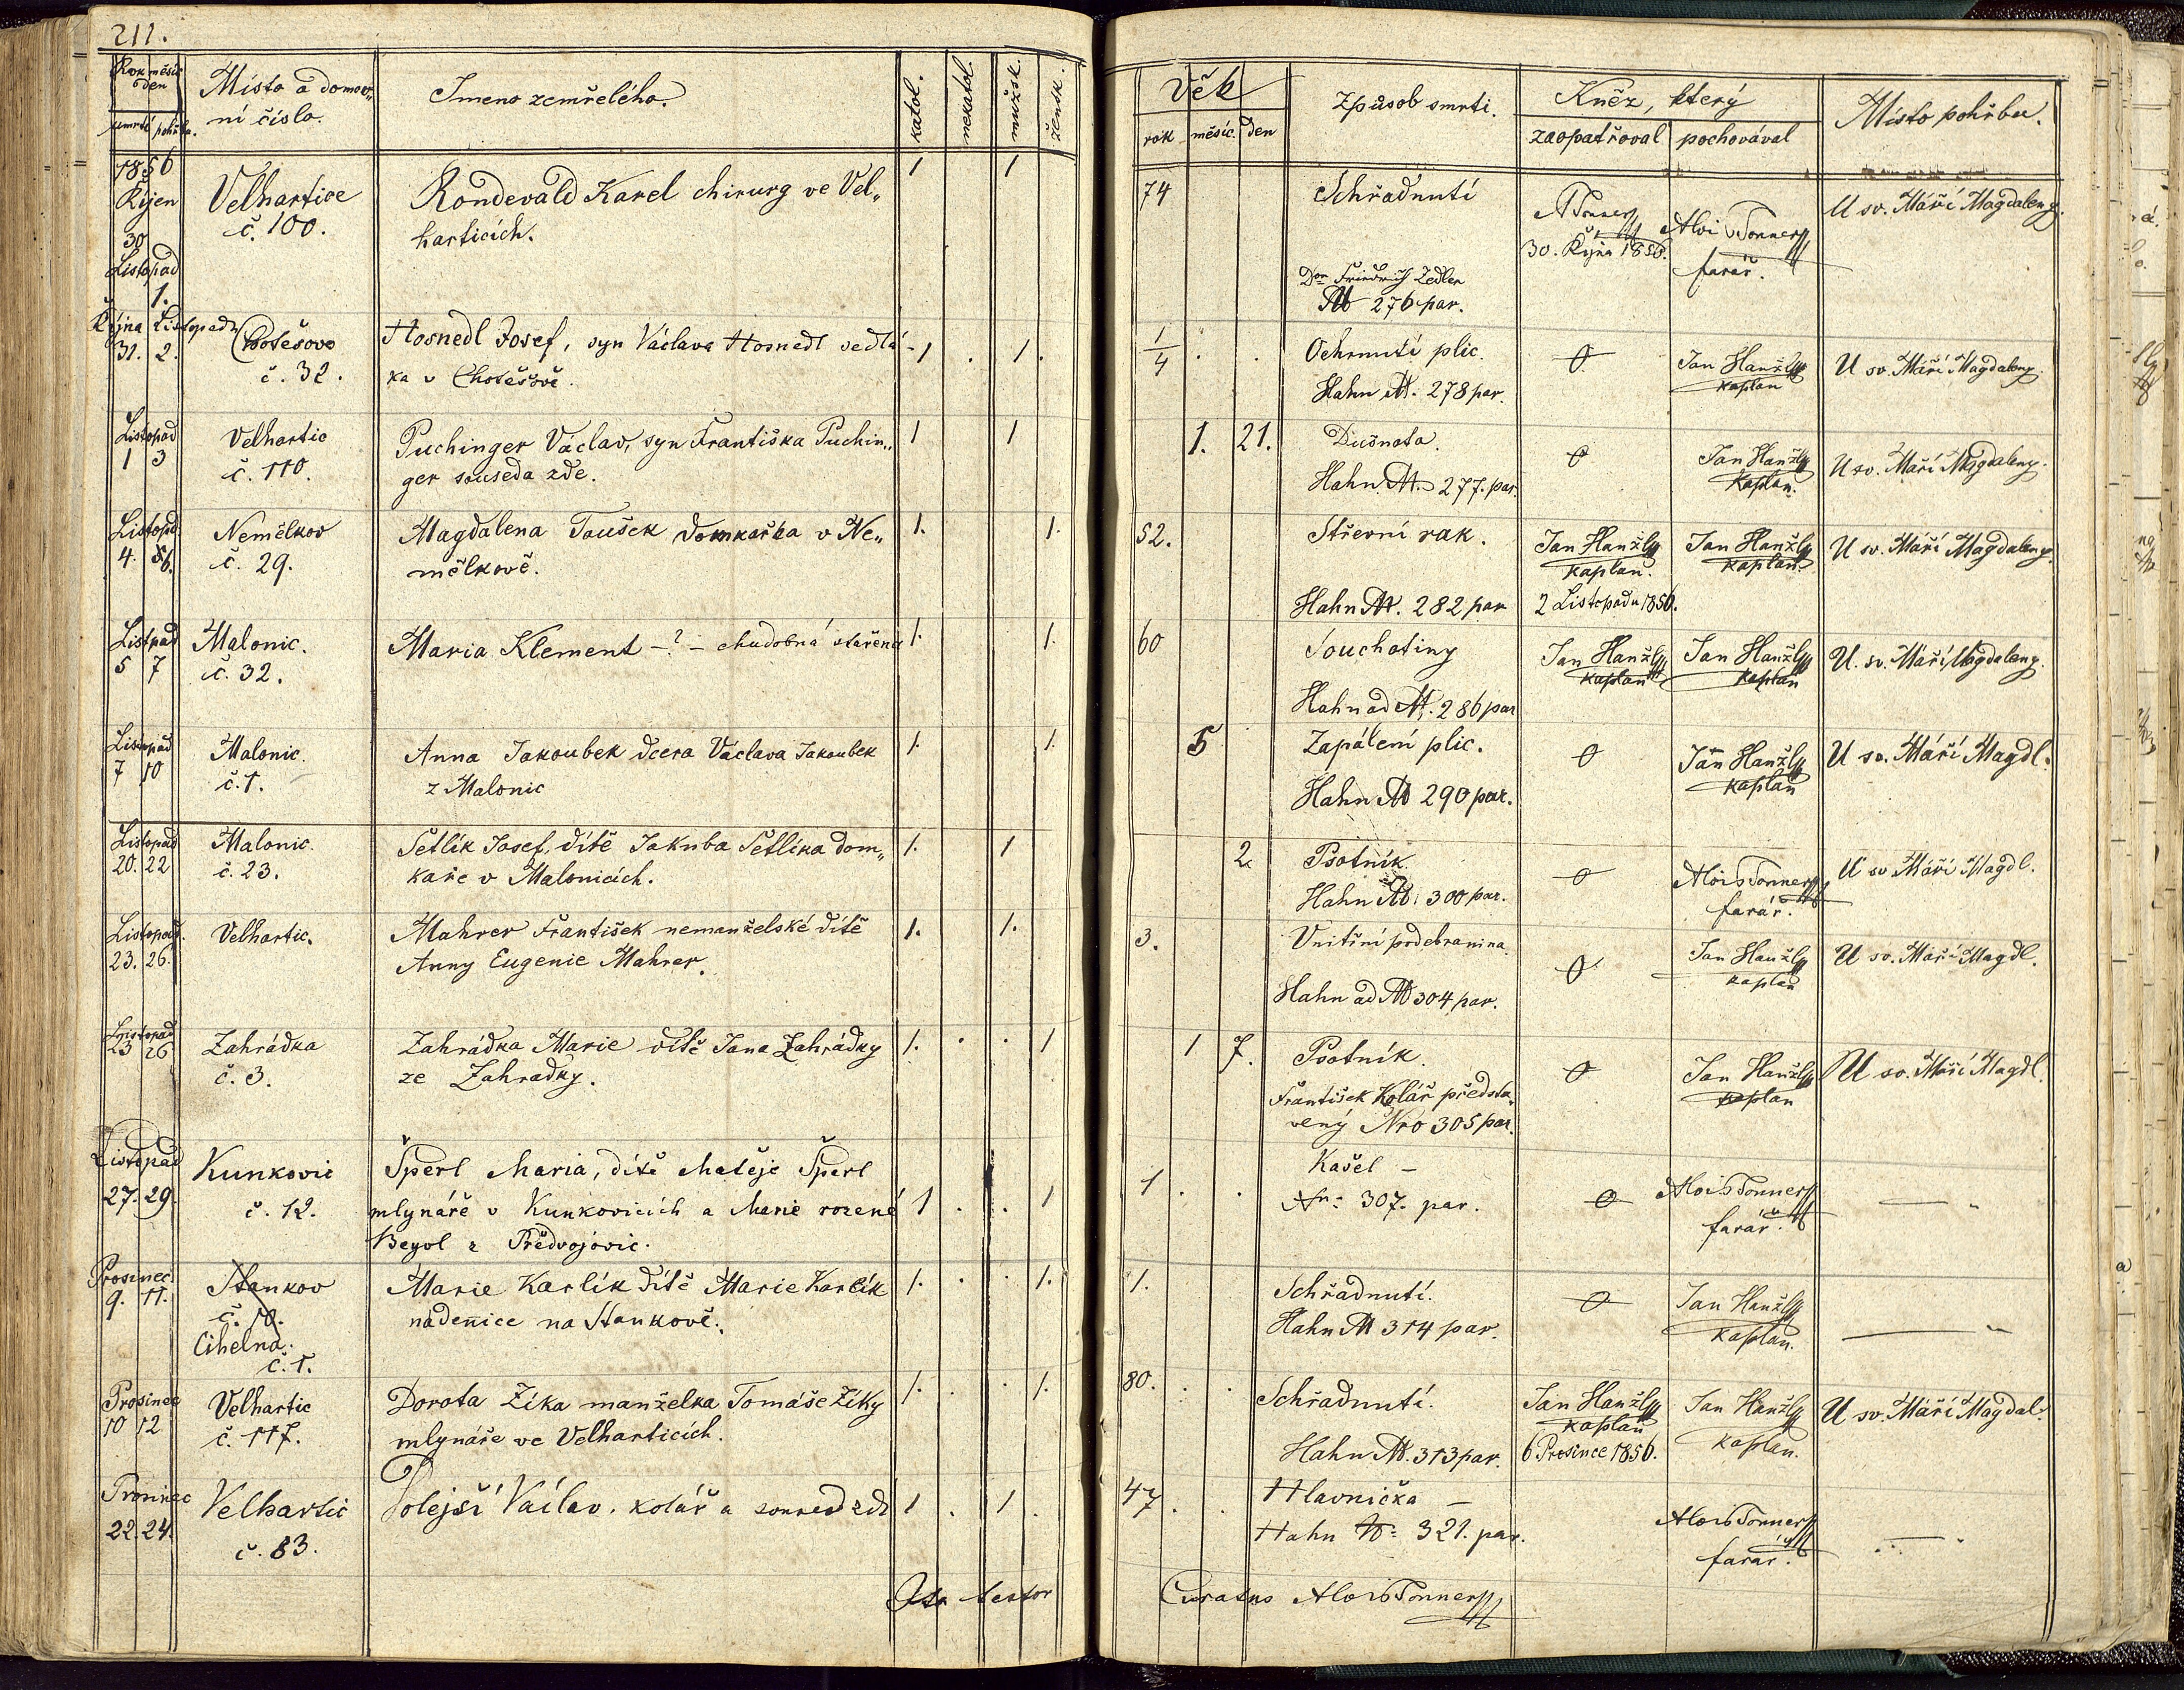 211.
Rok měsíc den
úmrtí pohřbu.
Místo a domov„
ní číslo.
Jmeno zemřelého.
katol.
nekatol.
mužsk.
žensk.
Věk
rok měsíc. den
způsob smrti.
Kněz, který
zaopatřoval pochovával
Místo pohřbu.
1856
Říjen
30
Listopad
1.
Velhartice
č. 100.
Rondevald Karel chirurg ve Vel„
harticích.
1 1
74
Schřadnutí
Friedrich Zedler
276 par.
ATonner
30. Října 1856.
Alois Tonner
farář.
U sv. Máří Magdaleny.
Října Listopadu
31. 2.
Chotěšovo
č. 32.
Hosnedl Josef, syn Václava Hosnedl sedlá-
ka v Chotěšově.
1 . 1.
1/4 . .
Ochrnutí plic.
Hahn N. 278 par.
0
Jan Hanžl
kaplan
U sv. Máří Magdaleny.
Listopad
1 3
Velhartic
č. 110.
Puchinger Václav, syn Františka Puchin„
ger souseda zde.
1 1
1. 21.
Dušnota.
Hahn N. 277. par.
0
Jan Hanžl
Kaplan.
U sv. Máří Magdaleny.
Listopd.
4. 6.
Nemělkov
č. 29.
Magdalena Taušek domkařka v Ne„
mělkově.
1. 1.
52.
Střevní rak.
Hahn N. 282 par
Jan Hanžl
kaplan.
2 Listopadu 1856.
Jan Hanžl
kaplan.
U sv. Máří Magdaleny.
Listpad
5 7
Malonic.
č. 32.
Maria Klement -?- chudobná stařena
1. 1.
60
Souchotiny
Hahn ad N. 286 par
Jan Hanžl
kaplan
Jan Hanžl
kaplan
U. sv. Máří Magdaleny.
Listopad
7 10
Malonic.
č. 1.
Anna Jakoubek dcera Václava Jakoubek
z Malonic
1. 1.
5
Zapálení plic.
Hahn N 290 par.
0
Jan Hanžl
kaplan
U sv. Máří Magdl.
Listopad
20. 22
Malonic.
č. 23.
Setlík Josef, dítě Jakuba Setlíka dom„
kaře v Malonicích.
1. 1
2.
Psotník.
Hahn N. 300 par.
0
Alois Tonner
farář.
U sv Máří Magdl.
Listopad.
23. 26.
Velhartic.
Mahrer František nemanželské dítě
Anny Eugenie Mahrer.
1. 1.
3.
Vnitřní podebranina
Hahn ad N 304 par.
0
Jan Hanžl
kaplan
U sv. Máří Magdl.
Listopad
23 26
Zahrádka
č. 3.
Zahrádka Marie dítě Jana Zahrádky
ze Zahradky.
1. . . 1
1 7.
Psotník.
František Kolář předsta„
vený Nro 305 par.
0
Jan Hanžl
kaplan
U sv. Máří Magdl.
Listopad
27. 29.
Kunkovic
č. 12.
Šperl Maria, dítě Matěje Šperl
mlynáře v Kunkovicích a Marie rozené
z Předvojovic.
1 . . 1
1 . .
Kašel -
N: 307. par.
0
Alois Tonner
farář.
— „
Prosinec
9. 11.
Stankov
č. 10.
Cihelna.
č. 1.
Marie Karlík dítě Marie Karlík
nadenice na Stankově.
1. . . 1.
1.
Schřadnutí.
Hahn N 314 par.
0
Jan Hanžl
kaplan.
— „
Prosinec
10 12
Velhartic
č. 117.
Dorota Zíka manželka Tomáše Zíky
mlynáře ve Velharticích.
1. . . 1.
80. . .
Schřadnutí.
Hahn N. 313 par.
Jan Hanžl
kaplan
6 Prosince 1856.
Jan Hanžl
kaplan.
U sv. Máří Magdal.
Prosinec
22. 24.
Velhartic
č. 83.
Tolejší Václav, kolář a soused zde
1 . 1 .
47 . .
Hlavnička —
Hahn N: 321. par.
Alois Tonner
farář.
— „
Ita testor
Curatus Alois Tonner